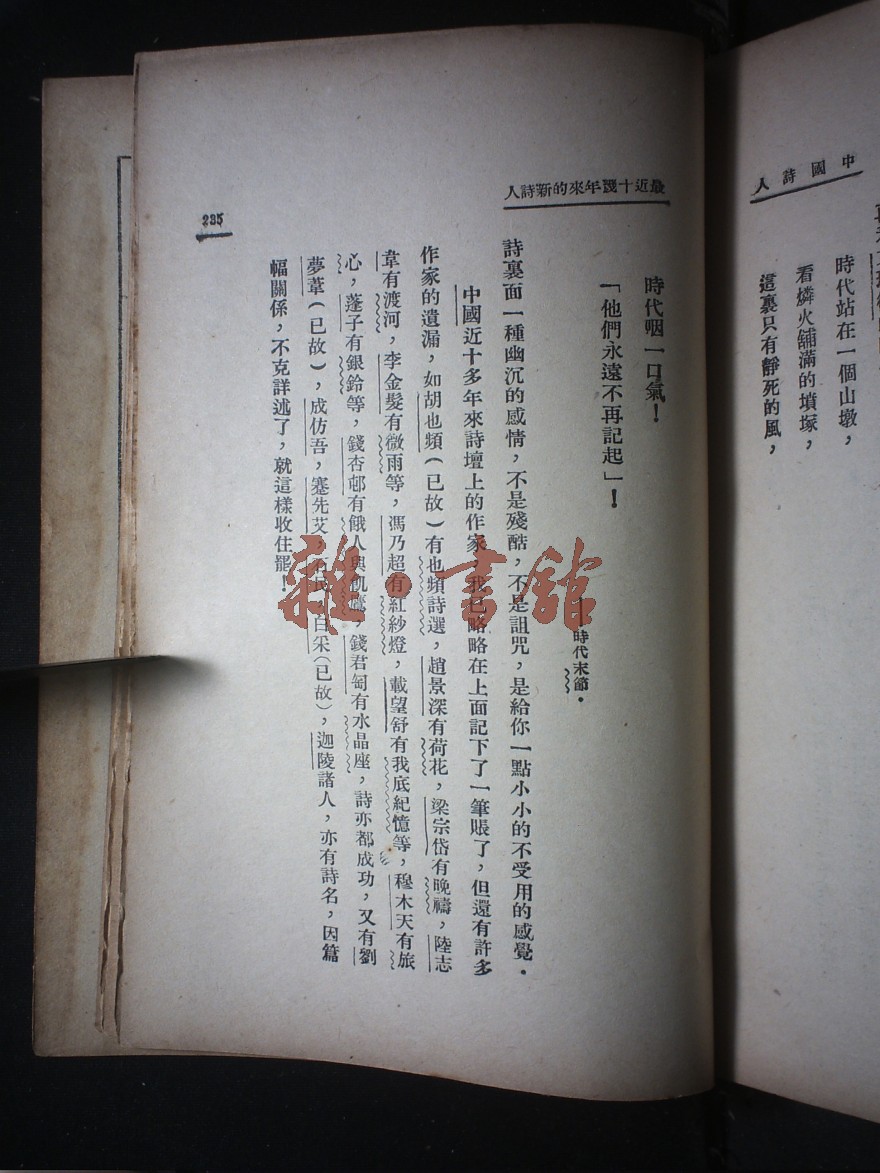 中國詩人
時代站在一個山墩，
看燐火舖滿的墳塚，
這裏只有靜死的風，
最近十幾年來的新詩人
時代咽一口氣！
「他們永遠不再記起」！
——時代末節。
詩裏面一種幽沉的感情，不是殘酷，不是詛咒，是給你一點小小的不受用的感覺。
中國近十多年來詩壇上的作家，我已略略在上面記下了一筆賬了，但還有許多
作家的遺漏，如胡也頻(已故)有也頻詩選，趙景深有荷花，梁宗岱有晚禱，陸志
韋有渡河，李金髮有微雨等，馮乃超有紅紗燈，載望舒有我底紀憶等，穆木天有旅
心，蓬子有銀鈴等，錢杏邨有餓人與飢鷹，錢君匋有水晶座，詩亦都成功，又有劉
夢葦(已故)，成仿吾，蹇先艾，石民，白采(已故)，迦陵諸人，亦有詩名，因篇
幅關係，不克詳述了，就這樣收住罷！
235
雜·書館